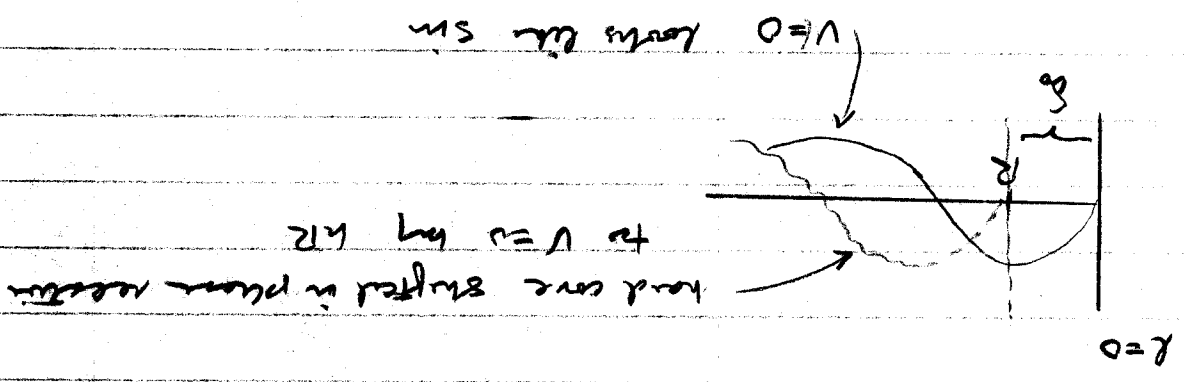 l=0
hard core shifted in phase relation
to V=0 by kR
R
δ₀
V=0 looks like sin